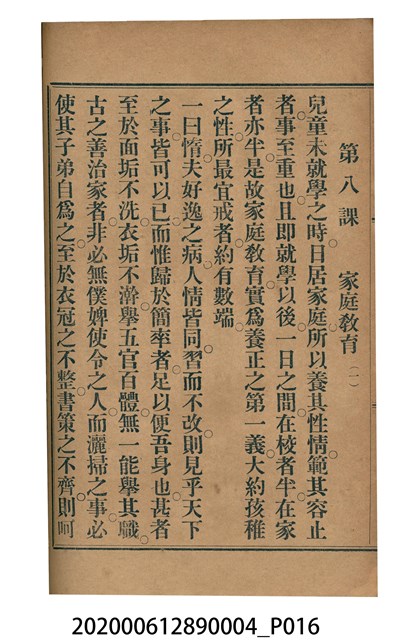 第八課　家庭教育(一)
兒童未就學之時日居家庭所以養其性情範其容止
者事至重也且即就學以後一日之間在校者半在家
者亦半是故家庭教育實爲養正之第一義大約孩稚
之性所最宜戒者約有數端
一曰惰夫好逸之病人情皆同習而不改則見乎天下
之事皆可以已而惟歸於簡率者足以便吾身也甚者
至於面垢不洗衣垢不澣舉五官百體無一能舉其職
古之善治家者非必無僕婢使令之人而灑掃之事必
使其子弟自爲之至於衣冠之不整書策之不齊則呵
202000612890004_P016